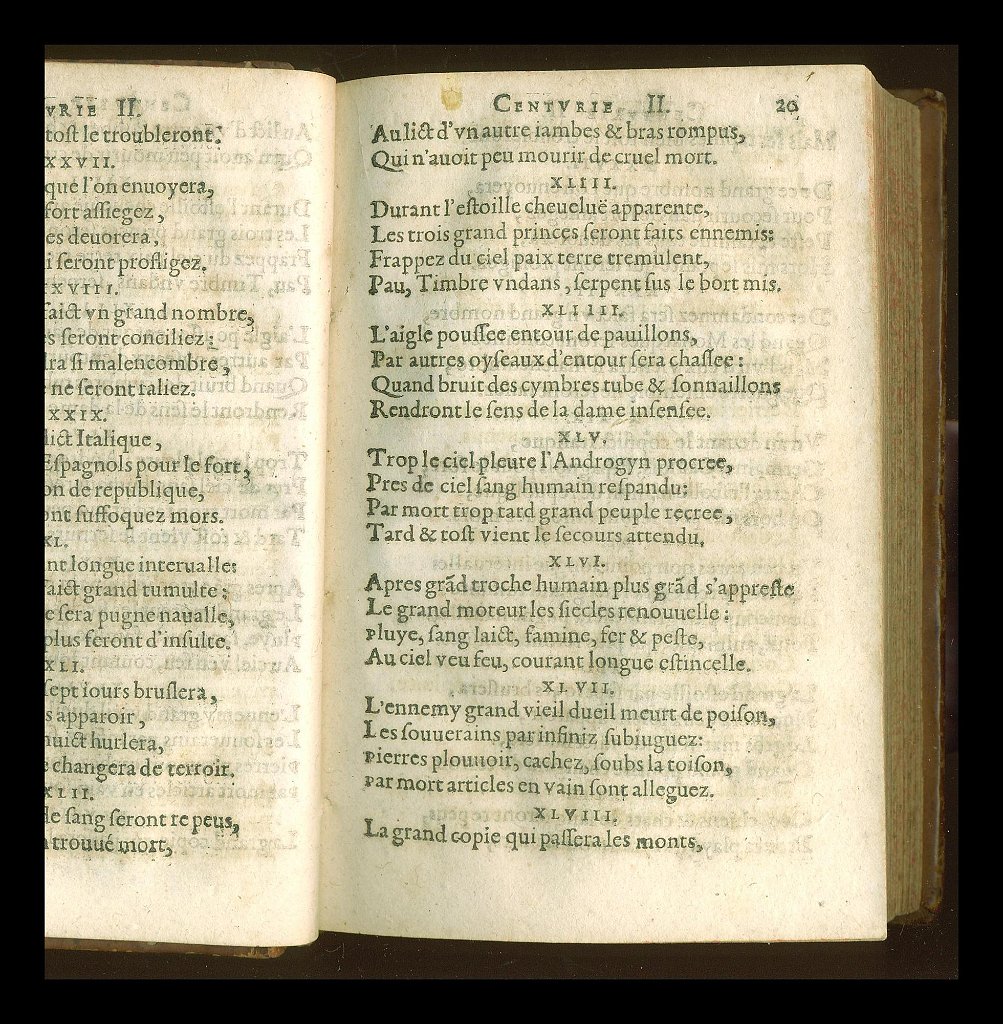 VRIE II.
tost le troubleront.
XXVII.
que l'on enuoyera,
fort assiegez,
es deuorera,
i seront profligez.
XXVIII.
faict vn grand nombre,
es seront conciliez:
ra si malencombre,
ne seront raliez.
XXIX.
lict Italique,
Espagnols pour le fort,
on de republique,
ont suffoquez mors.
XL.
nt longue interualle:
faict grand tumulte:
e sera pugne naualle,
plus feront d'insulte.
XLI.
sept iours bruslera,
s apparoir,
nuict hurlera,
e changera de terroir.
XLII.
de sang seront repeus,
trouué mort,
CENTVRIE II. 20
Au lict d'vn autre iambes & bras rompus,
Qui n'auoit peu mourir de cruel mort.
XLIII.
Durant l'estoille cheueluë apparente,
Les trois grand princes seront faits ennemis:
Frappez du ciel paix terre tremulent,
Pau, Timbre vndans, serpent sus le bort mis.
XLIIII.
L'aigle poussee entour de pauillons,
Par autres oyseaux d'entour sera chassee:
Quand bruit des cymbres tube & sonnaillons
Rendront le sens de la dame insensee.
XLV.
Trop le ciel pleure l'Androgyn procree,
Pres de ciel sang humain respandu:
Par mort trop tard grand peuple recree,
Tard & tost vient le secours attendu.
XLVI.
Apres grãd troche humain plus grãd s'appreste
Le grand moteur les siecles renouuelle:
Pluye, sang laict, famine, fer & peste,
Au ciel veu feu, courant longue estincelle.
XLVII.
L'ennemy grand vieil dueil meurt de poison,
Les souuerains par infiniz subiuguez:
Pierres plouuoir, cachez, soubs la toison,
Par mort articles en vain sont alleguez.
XLVIII.
La grand copie qui passera les monts,